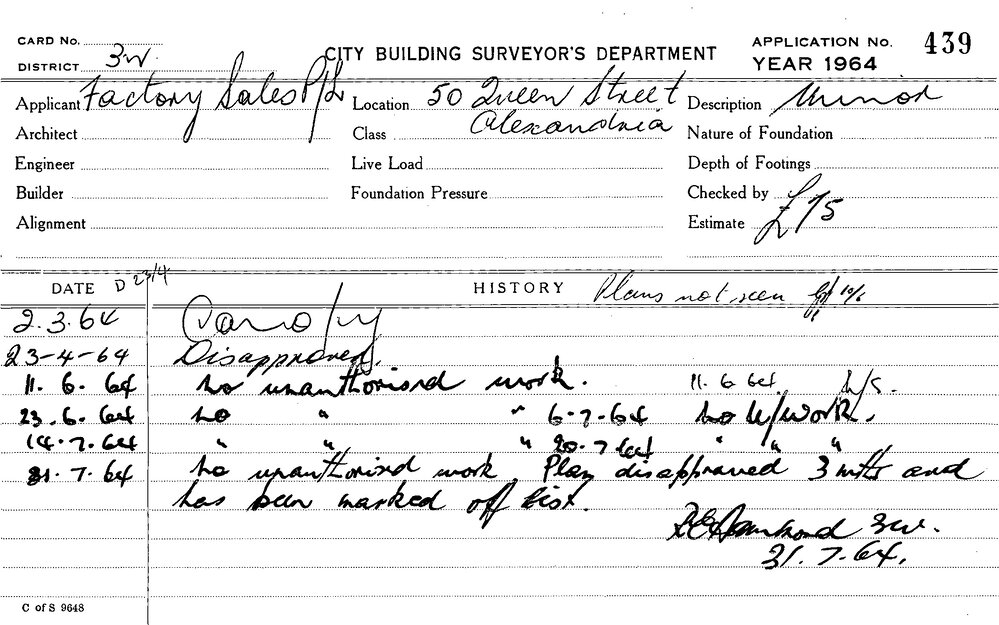 CARD No.
CITY BUILDING SURVEYOR'S DEPARTMENT
APPLICATION No. 439
DISTRICT 3W.
YEAR 1964
Applicant Factory Sales P/L Location 50 Queen Street Description Minor
Alexandria
Architect Class Nature of Foundation
Engineer Live Load Depth of Footings
Builder Foundation Pressure Checked by
Alignment Estimate £75
DATE D 23/4 HISTORY Plans not seen 10/6
2.3.64 Canopy
23-4-64 Disapproved.
11. 6. 64 No unauthorised work. 11. 6 64. N/S.
23.6.64 No " " 6.7.64 No U/work.
14.7.64 " " " 20.7.64 " " "
31.7.64 No unauthorised work. Plan disapproved 3 mths and
has been marked off list.
3W.
31.7.64.
C of S 9648